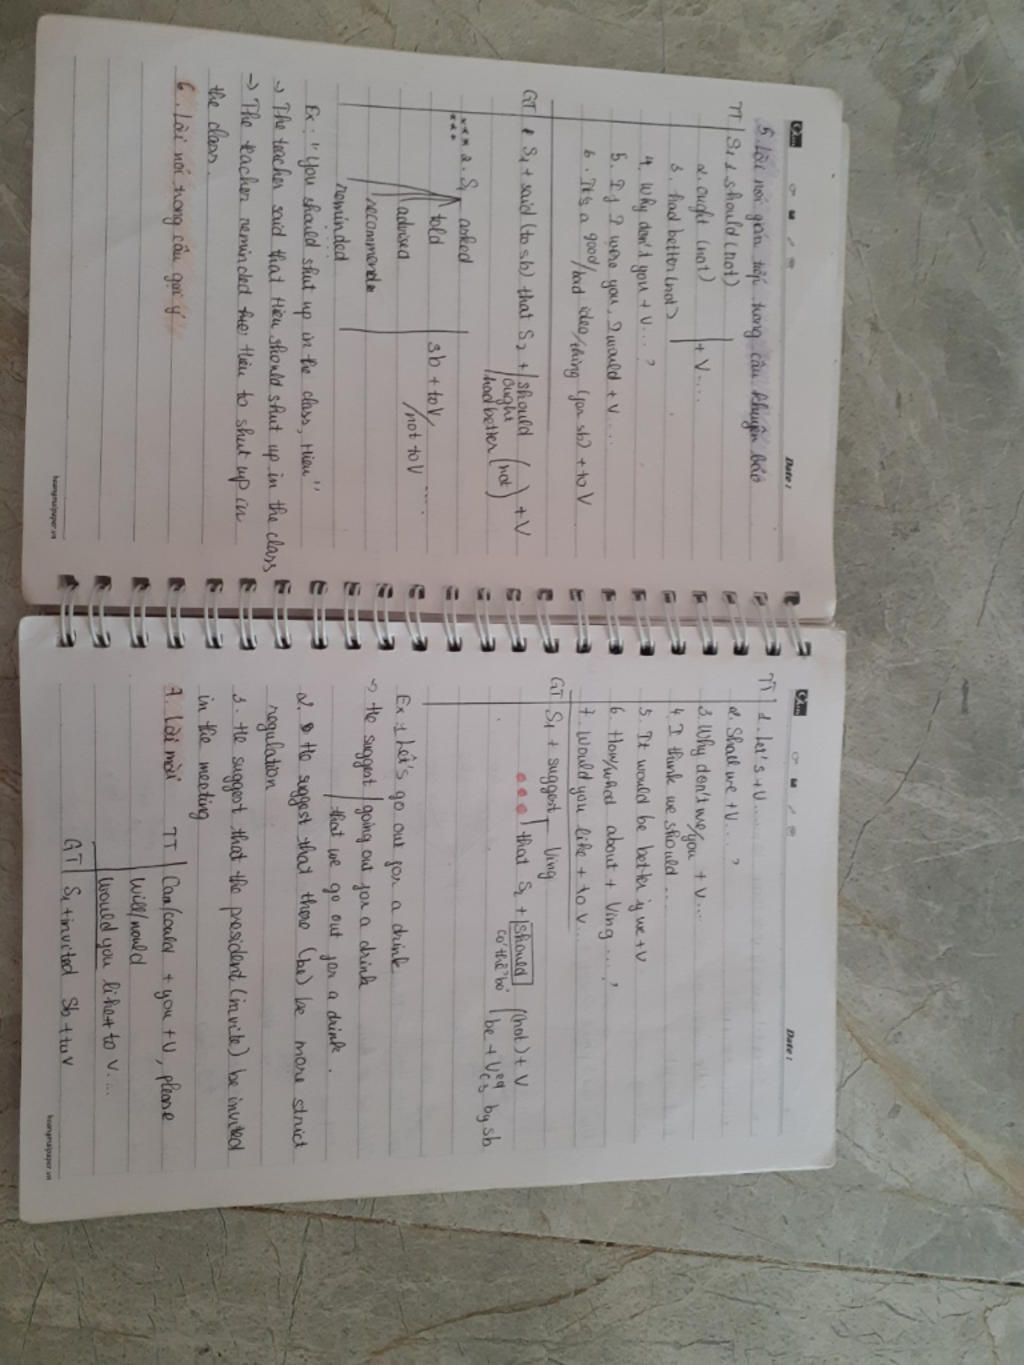 Date :
5. Lời nói gián tiếp trong câu khuyên bảo
TT | S1 + should (not)
2. ought (not) | + V...
3. had better (not)
4. Why don't you + V... ?
5. If I were you, I would + V....
6. It's a good/bad idea/thing (for sb) + to V
GT 1 S1 + said (to sb) that S2 + | should ( ) + V
ought
had better (not)
*** 2. S1 asked
*** told | sb + to V/ ....
advised /not to V
recommended
reminded
Ex: "You should shut up in the class, Hieu"
→ The teacher said that Hieu should shut up in the class
→ The teacher reminded Hieu to shut up in
the class.
6. Lời nói trong câu gợi ý
hoangmaipaper.vn
Date :
TT | 1. Let's + V.....
2. Shall we + V... ?
3. Why don't we/you + V....
4. I think we should ....
5. It would be better if we + V
6. How/what about + Ving .... ?
7. Would you like + to V...
GT S1 + suggest Ving
that S2 + | should | (not) + V
có thể bỏ
be + Ved/C3 by sb
Ex: 1 Let's go out for a drink
→ He suggest | going out for a drink
that we go out for a drink.
2. He suggest that there (be) be more strict
regulation
3. He suggest that the president (invite) be invited
in the meeting
7. Lời mời TT | Can/could + you + V, please
Will/would
Would you like + to V....
GT | S1 + invited sb + to V
hoangmaipaper.vn